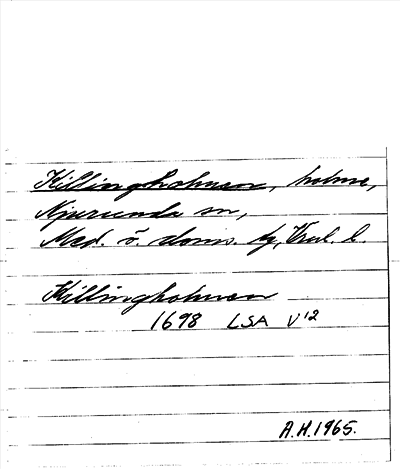 Killingholmen, holme,
Njurunda sn,
Med. ö. doms. tg, Vnl. l.
Killingholmen
1698 LSA V12
A.H.1965.